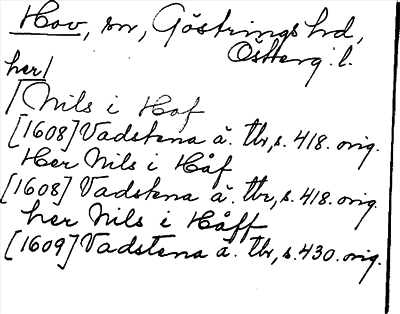 Hov, sn, Göstrings hd,
Österg. l.
her/
/ Nils i Hof
[1608] Vadstena ä. tbr, s. 418. orig.
Her Nils i Håf
[1608] Vadstena ä. tbr, s. 418. orig.
her Nils i Håff
[1609] Vadstena ä. tbr, s. 430. orig.